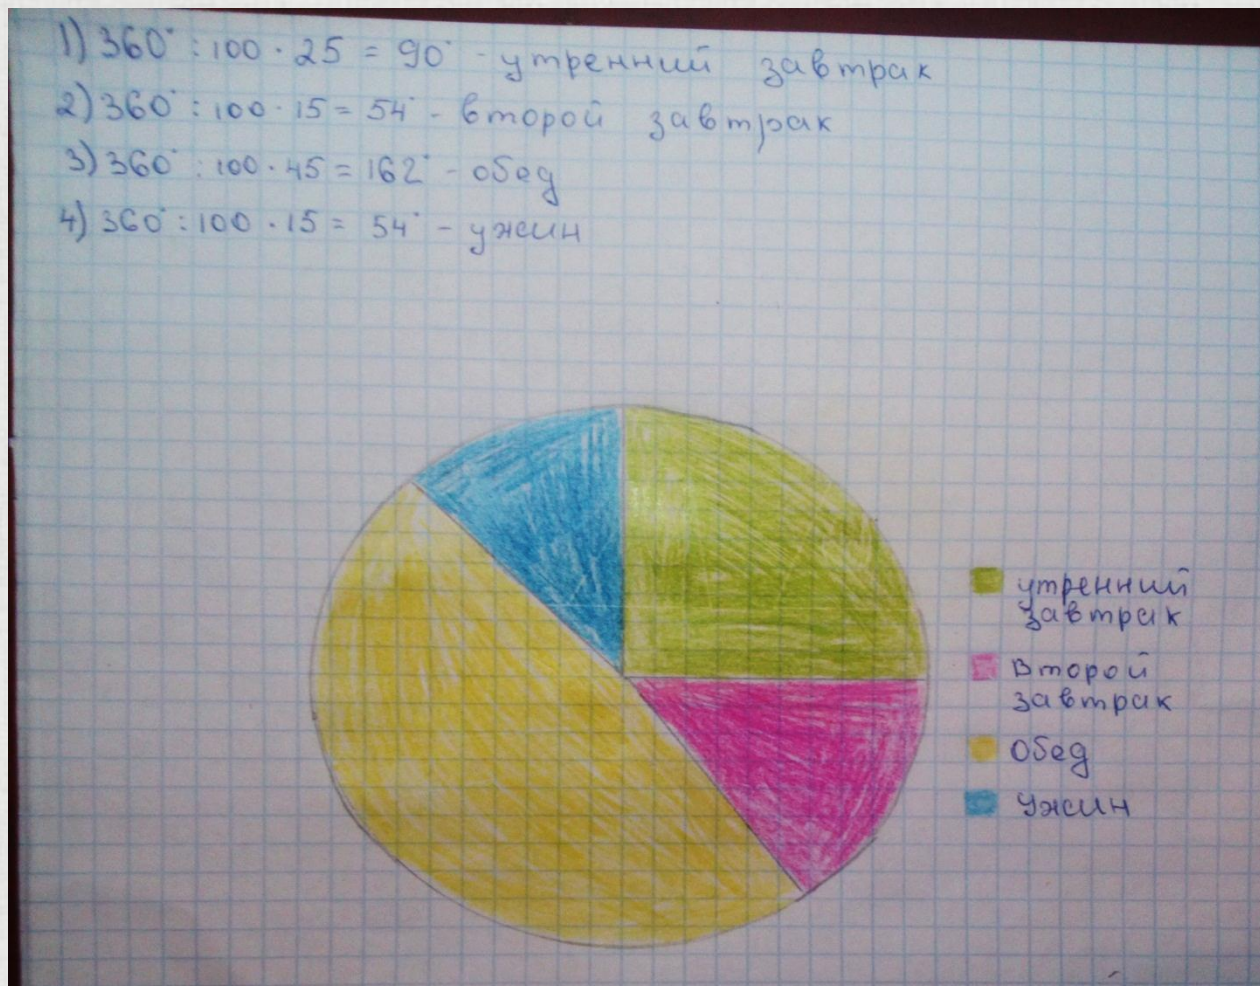 1) 360° : 100 · 25 = 90° - утренний завтрак
2) 360° : 100 · 15 = 54° - второй завтрак
3) 360° : 100 · 45 = 162° - обед
4) 360° : 100 · 15 = 54° - ужин
утренний
завтрак
Второй
завтрак
Обед
Ужин